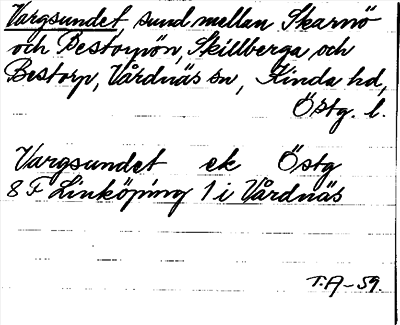 Vargsundet, sund mellan Skarnö
och Bestorpön, Skillberga och
Bestorp, Vårdnäs sn, Kinda hd,
Östg. l.
Vargsundet ek Östg
8 F Linköping 1 i Vårdnäs
T.A-59.